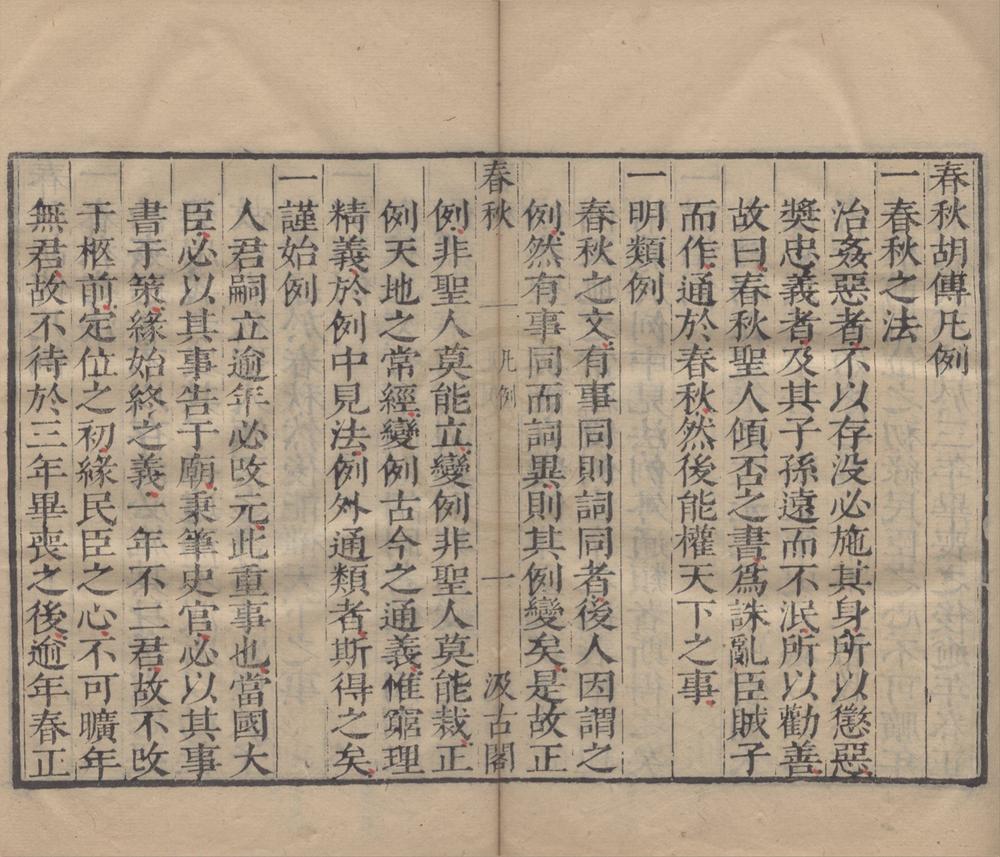 春秋胡傳凡例
一春秋之法
治姦惡者不以存没必施其身所以懲惡
奬忠義者及其子孫遠而不泯所以勸善
故曰春秋聖人傾否之書爲誅亂臣賊子
而作通於春秋然後能權天下之事
一明類例
春秋之文有事同則詞同者後人因謂之
例然有事同而詞異則其例變矣是故正
例非聖人莫能立變例非聖人莫能裁正
例天地之常經變例古今之通義惟窮理
精義於例中見法例外通類者斯得之矣
一謹始例
人君嗣立逾年必改元此重事也當國大
臣必以其事告于廟秉筆史官必以其事
書于策緣始終之義一年不二君故不改
于柩前定位之初緣民臣之心不可曠年
無君故不待於三年畢喪之後逾年春正
春秋 凡例 一 汲古閣